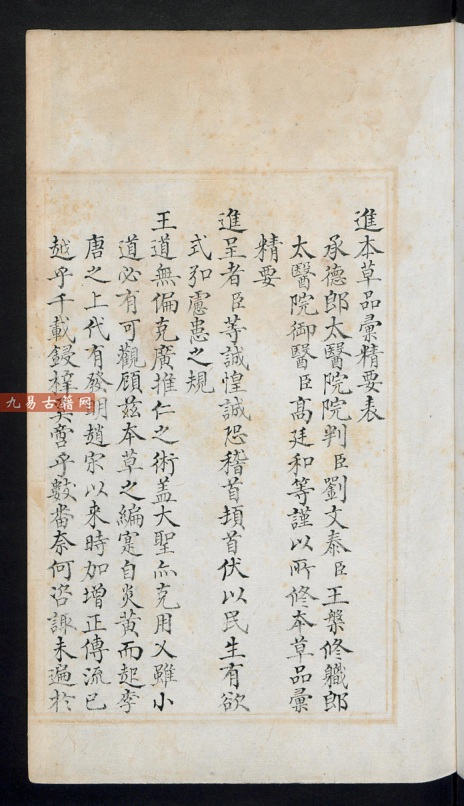 進本草品彙精要表
承德郎太醫院院判臣劉文泰臣王槃修職郎
太醫院御醫臣高廷和等謹以所修本草品彙
精要
進呈者臣等誠惶誠恐稽首頓首伏以民生有欲
式弘慮患之規
王道無偏克廣推仁之術盖大聖亦克用乂雖小
道必有可觀顧茲本草之編寔自炎黃而起李
唐之上代有發明趙宋以来時加增正傳流已
越乎千載鋟梓 乎數畨奈何咨諏未遍於
九易古籍网